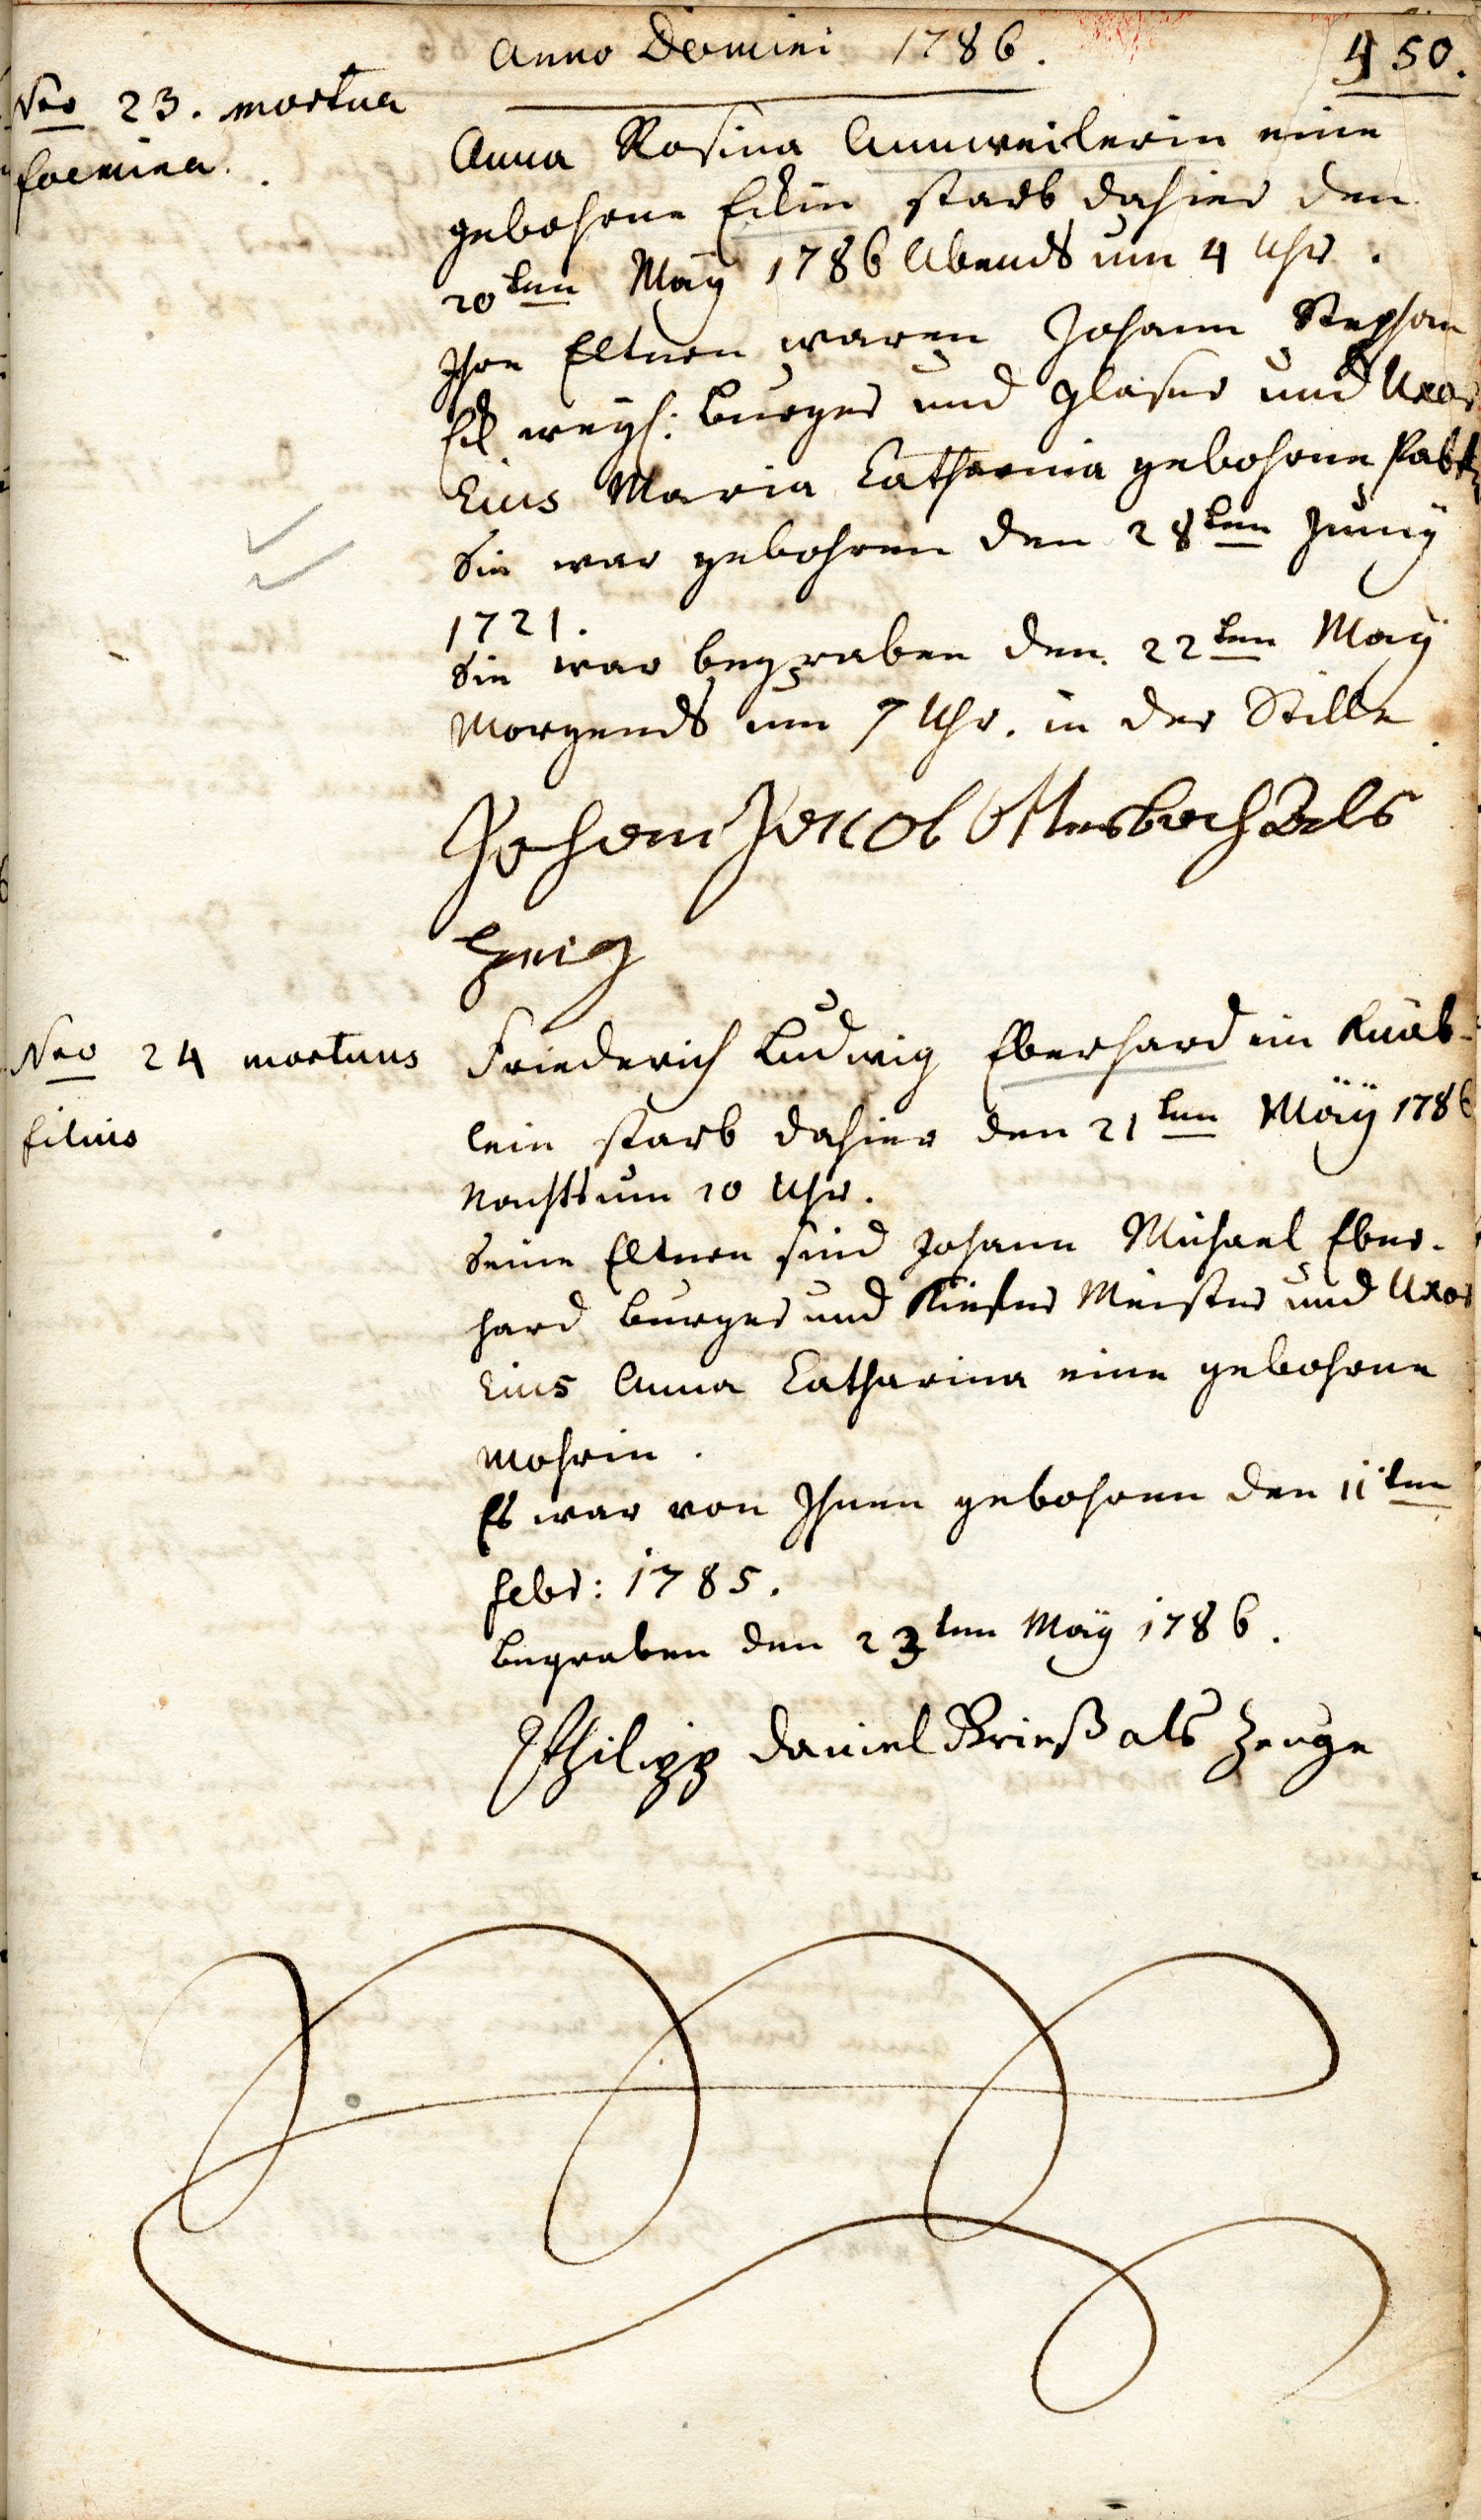 Anno Domini 1786.
450.
Nro 23. mortua
foemina.
Anna Rosina Annweilerin eine
gebohrne Eckin starb dahier den
20ten May 1786 Abends um 4 Uhr.
Ihre Elteren waren Johann Stephan
Eck weyl: Burger und Glaser und Uxor
Eius Maria Catharina gebohrne
Sie war gebohren den 28ten Juny
1721.
Sie war begraben den 22ten May
Morgends um 7 Uhr. in der Stille
Johann Jacob als
zeig
Nro 24 mortuus
filius
Friederich Ludwig Eberhard ein Knäb-
lein starb dahier den 21ten May 1786
Nachts um 10 Uhr.
Seine Elteren sind Johann Michael Eber-
hard Burger und Kiefer Meister und Uxor
Eius Anna Catharina eine gebohrne
Mohrin.
Es war von Ihnen gebohren den 11ten
Febr: 1785.
Begraben den 23ten May 1786.
Philipp Daniel Brieß als Zeuge